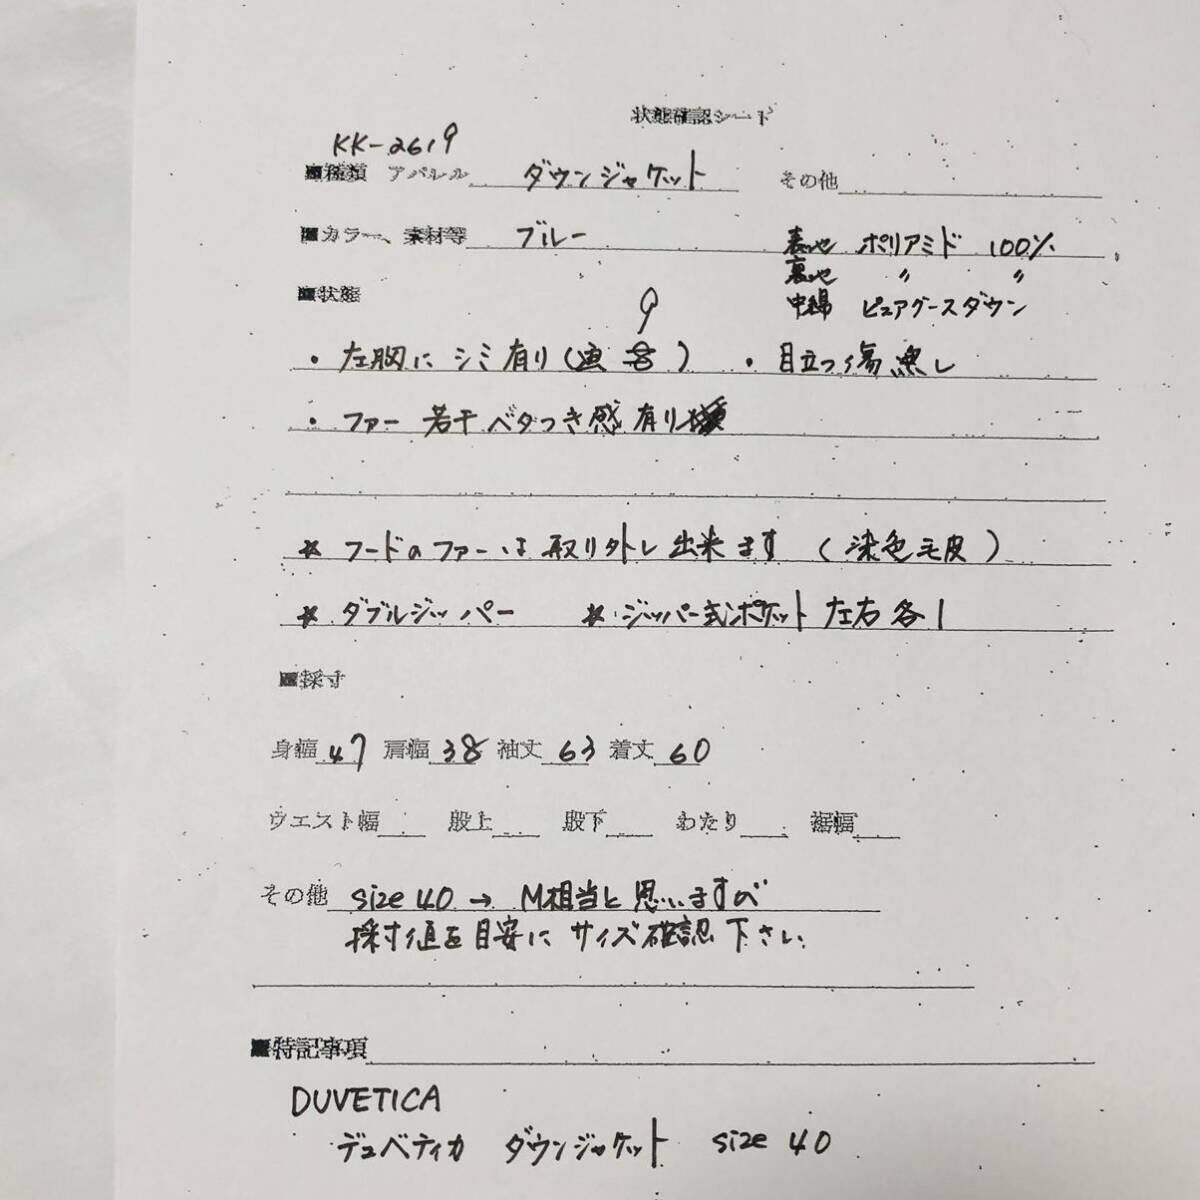 状態確認シート
KK-2619
■種類 アパレル ダウンジャケット その他
■カラー、素材等 ブルー 表地 ポリアミド 100%
裏地 〃 〃
■状態 中綿 ピュアグースダウン
9
・左胸に シミ有り(画8) ・目立つ傷無し
・ファー 若干ベタつき感有り
☆ フードのファーは取り外し出来ます (染色毛皮)
☆ ダブルジッパー ☆ ジッパー式ポケット 左右各1
■採寸
身幅 47 肩幅 38 袖丈 63 着丈 60
ウエスト幅 股上 股下 わたり 裾幅
その他 size 40 → M相当と思いますが
採寸値を目安に サイズ確認下さい.
■特記事項
DUVETICA
デュベティカ ダウンジャケット size 40